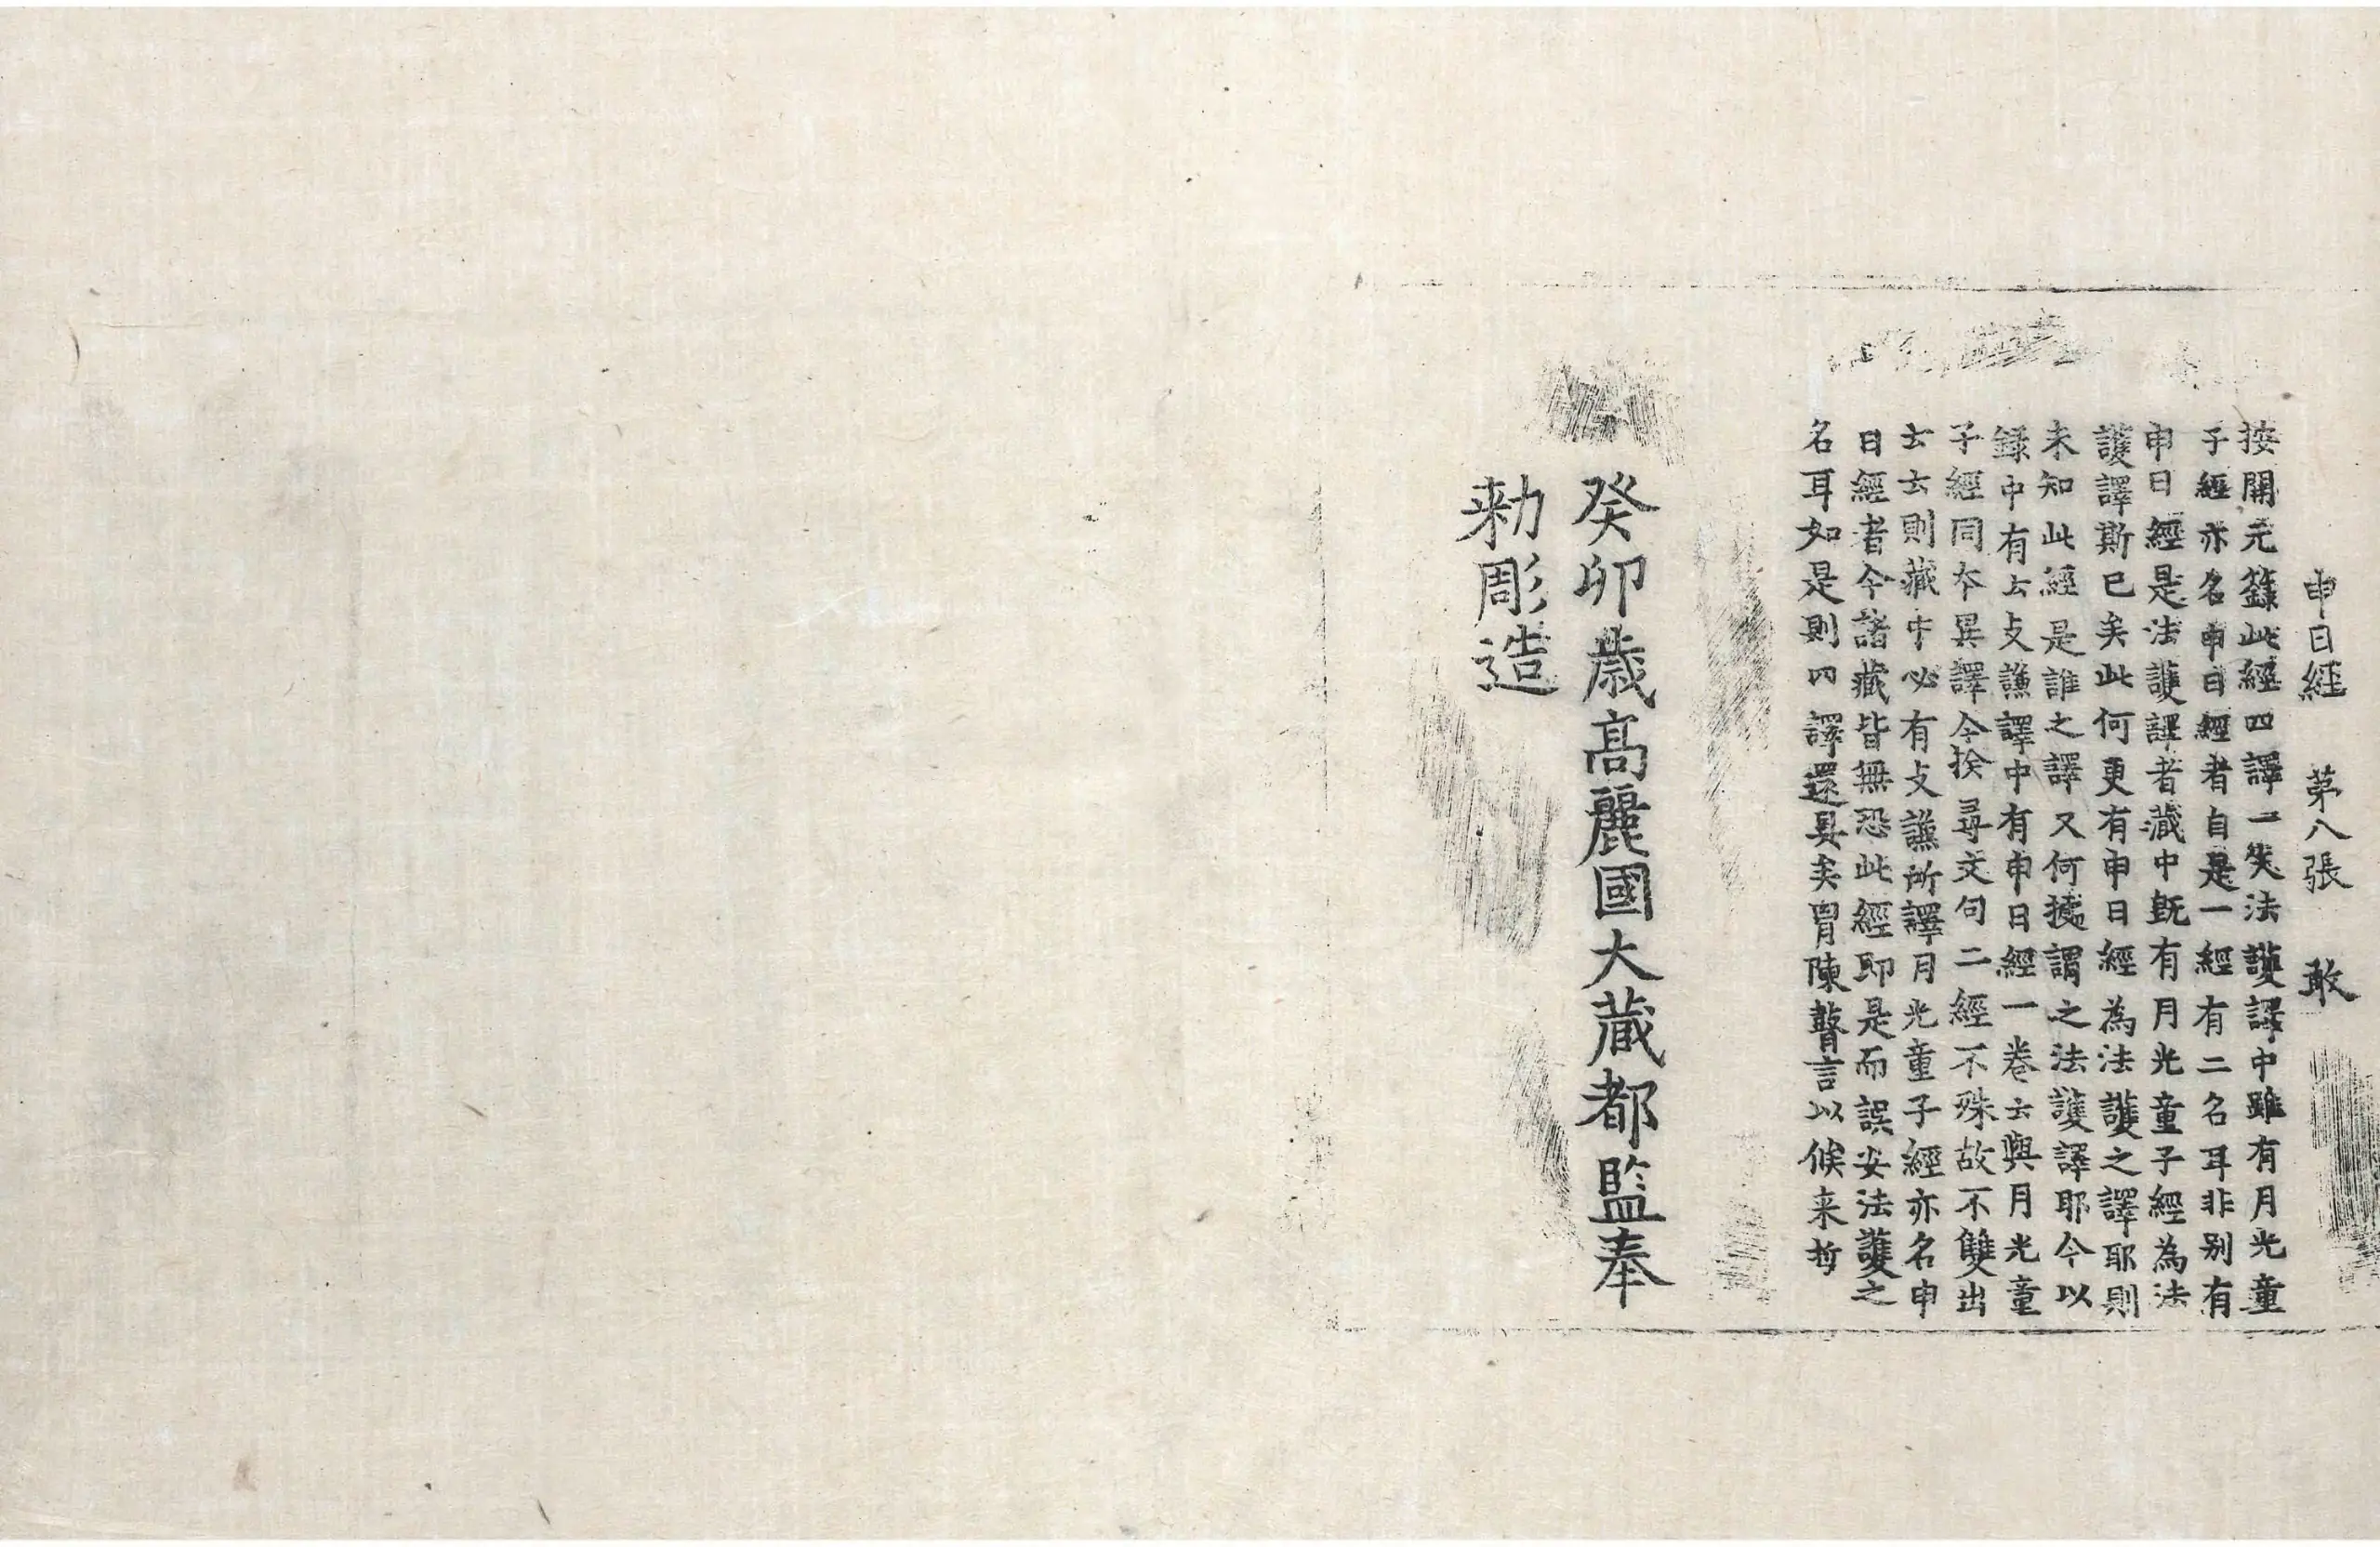 申日経 第八張 敢
按開元籙此經四譯一失法護譯中雖有月光童
子經亦名申日經者自是一經有二名耳非别有
申日經是法護譯者藏中旣有月光童子經為法
護譯斯已矣此何更有申日經為法護之譯耶則
未知此經是誰之譯又何據謂之法護譯耶今以
録中有云支謙譯中有申日經一卷云與月光童
子經同夲異譯今撿尋文句二經不殊故不雙出
云云則藏中必有支謙所譯月光童子經亦名申
日經者今諸藏皆無恐此經即是而誤安法護之
名耳如是則四譯還具矣冐陳瞽言以候来哲
癸卯歳高麗國大藏都監奉
勑彫造